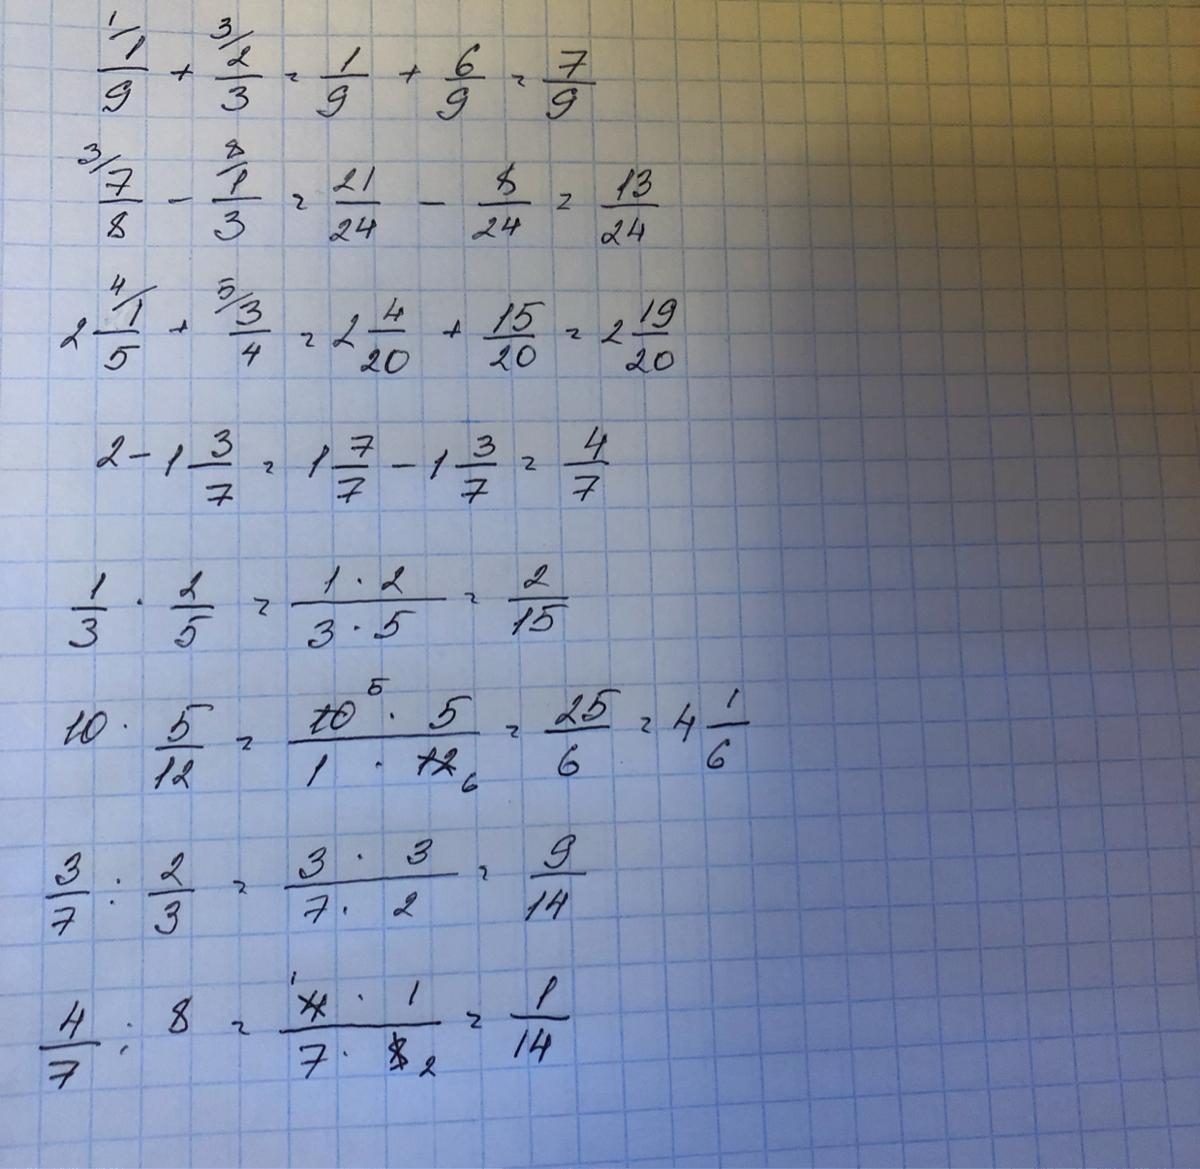 1/ 1/9 + 3/ 2/3 = 1/9 + 6/9 = 7/9
3/ 7/8 - 8/ 1/3 = 21/24 - 8/24 = 13/24
2 4/ 1/5 + 5/ 3/4 = 2 4/20 + 15/20 = 2 19/20
2 - 1 3/7 = 1 7/7 - 1 3/7 = 4/7
1/3 · 2/5 = (1 · 2)/(3 · 5) = 2/15
10 · 5/12 = (10 5 · 5)/(1 · 12 6) = 25/6 = 4 1/6
3/7 : 2/3 = (3 · 3)/(7 · 2) = 9/14
4/7 : 8 = (1 4 · 1)/(7 · 8 2) = 1/14